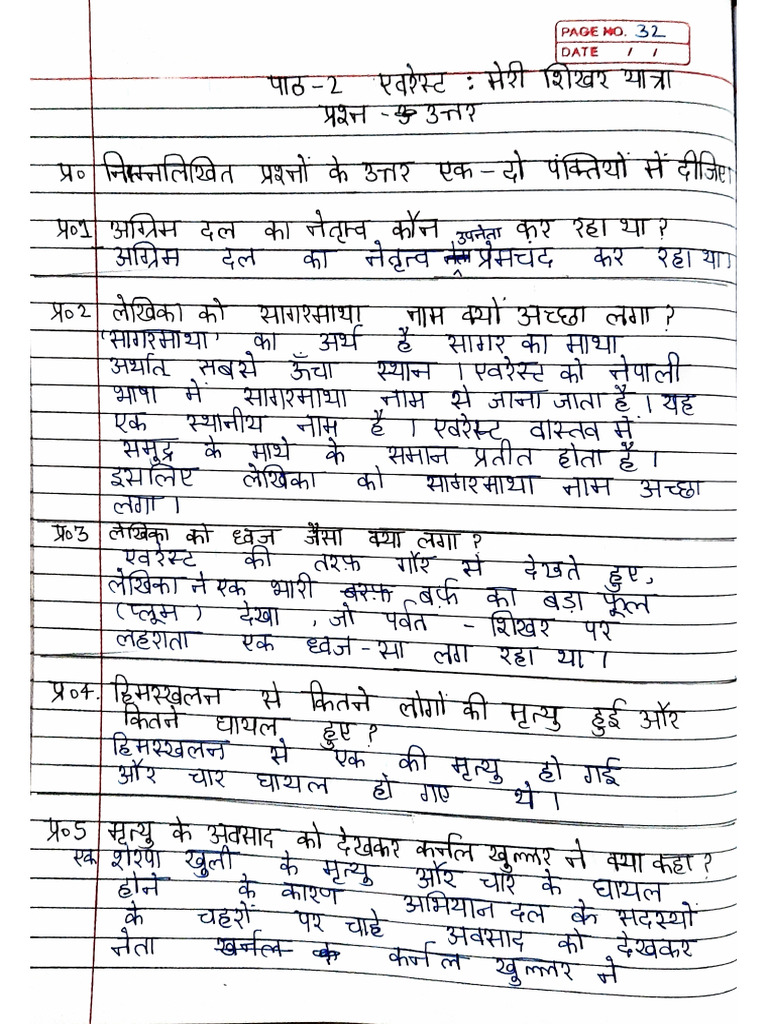 PAGE NO. 32
DATE / /
पाठ-2 एवरेस्ट : मेरी शिखर यात्रा
प्रश्न - उत्तर
प्र० निम्नलिखित प्रश्नों के उत्तर एक - दो पंक्तियों में दीजिए।
प्र०1 अग्रिम दल का नेतृत्व कौन कर रहा था?
अग्रिम दल का नेतृत्व उपनेता प्रेमचंद कर रहा था।
प्र०2 लेखिका को सागरमाथा नाम क्यों अच्छा लगा?
'सागरमाथा' का अर्थ है सागर का माथा
अर्थात सबसे ऊँचा स्थान। एवरेस्ट को नेपाली
भाषा में सागरमाथा नाम से जाना जाता है। यह
एक स्थानीय नाम है। एवरेस्ट वास्तव में
समुद्र के माथे के समान प्रतीत होता है।
इसलिए लेखिका को सागरमाथा नाम अच्छा
लगा।
प्र०3 लेखिका को ध्वज जैसा क्या लगा?
एवरेस्ट की तरफ़ गौर से देखते हुए,
लेखिका ने एक भारी बर्फ़ का बड़ा फूल
(प्लूम) देखा, जो पर्वत - शिखर पर
लहराता एक ध्वज-सा लग रहा था।
प्र०4. हिमस्खलन से कितने लोगों की मृत्यु हुई और
कितने घायल हुए?
हिमस्खलन से एक की मृत्यु हो गई
और चार घायल हो गए थे।
प्र०5 मृत्यु के अवसाद को देखकर कर्नल खुल्लर ने क्या कहा?
एक शेरपा खुली के मृत्यु और चार के घायल
होने के कारण अभियान दल के सदस्यों
के चहरों पर चाहे अवसाद को देखकर
नेता खर्नल कर्नल खुल्लर ने